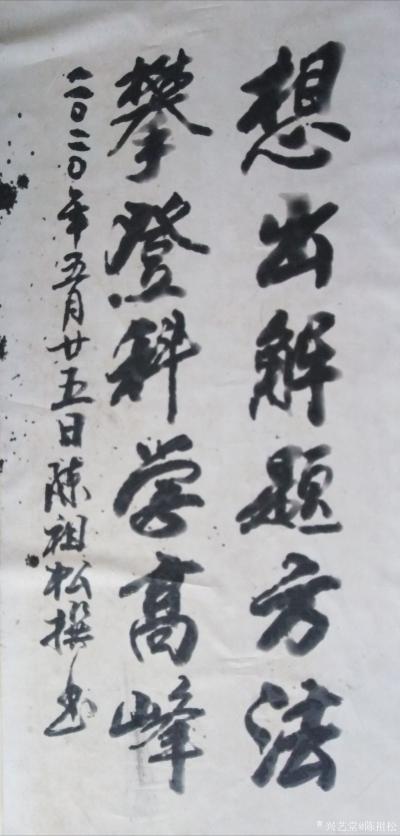 想出解题方法
攀登科学高峰
二〇二〇年五月廿五日陈祖松撰书
兴艺堂@陈祖松